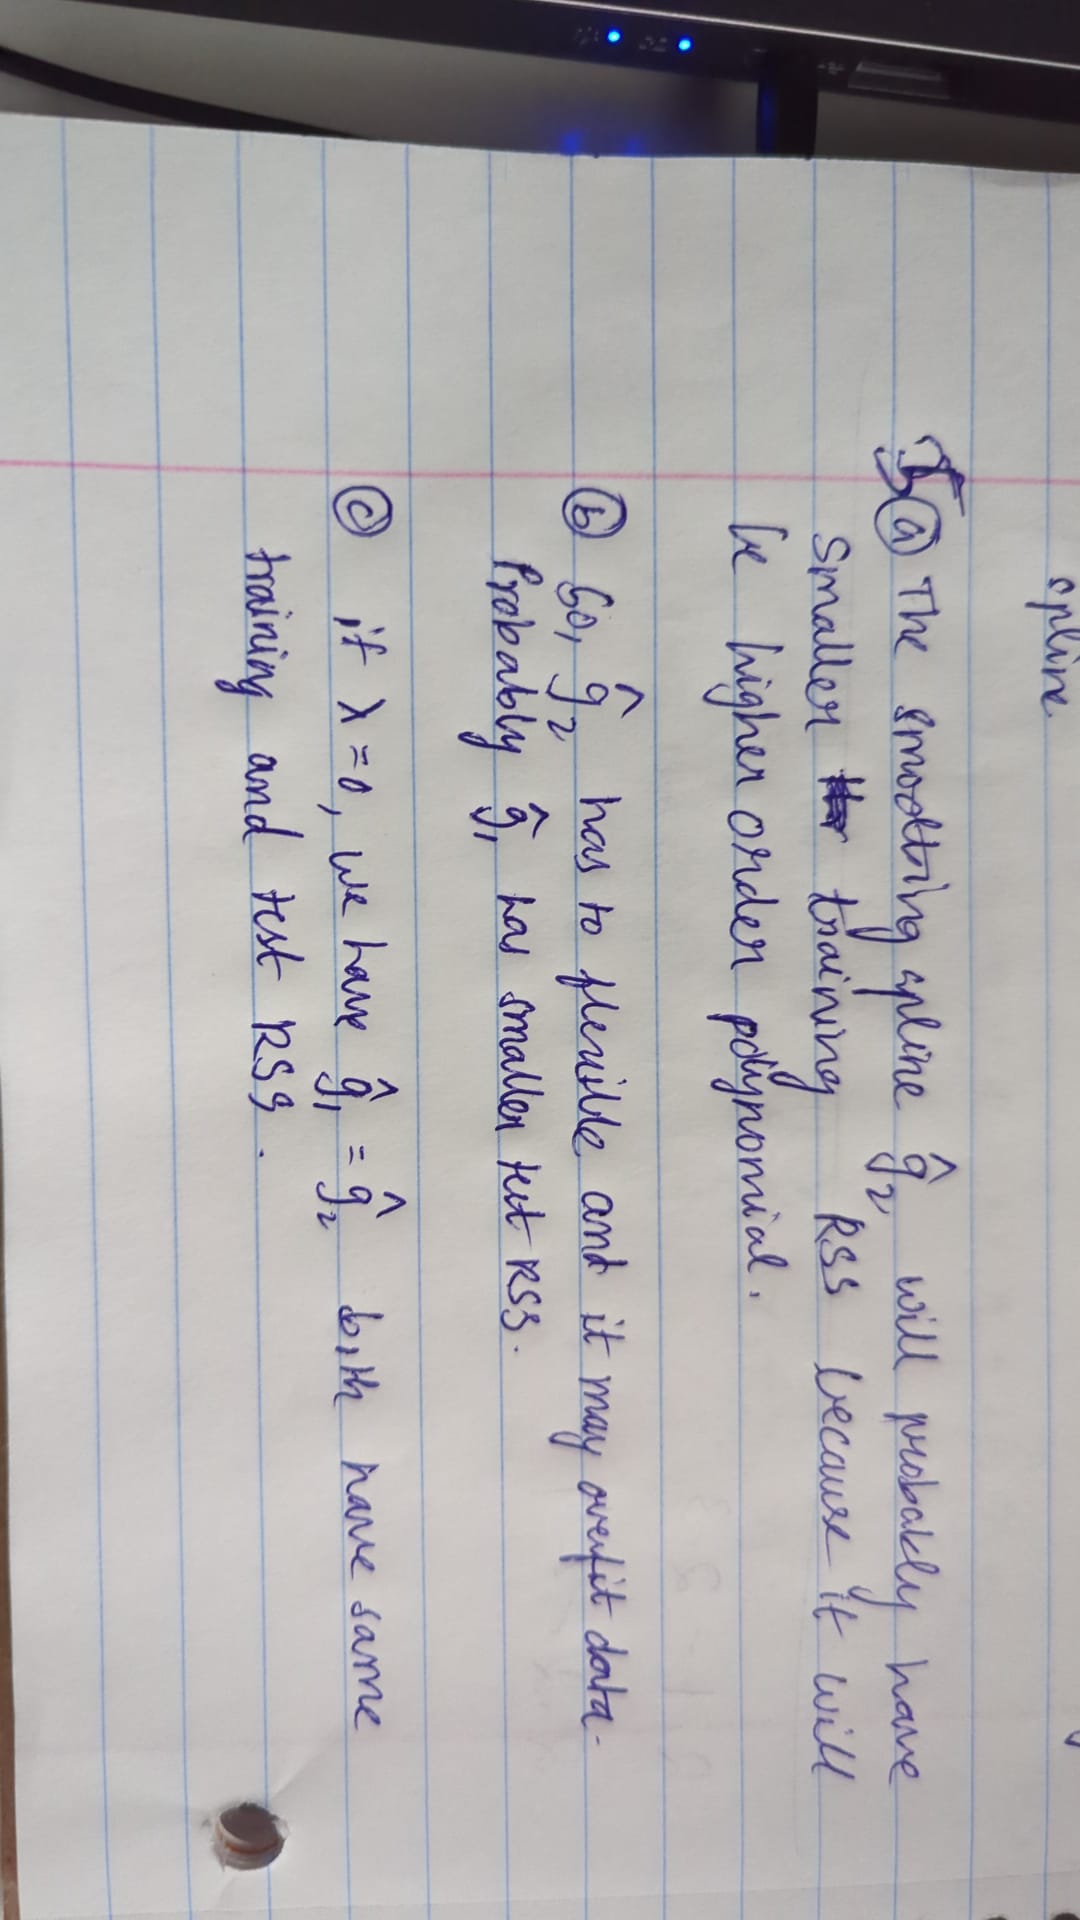 spline
5 (a) The smoothing spline ĝ₂ will probably have
smaller training RSS because it will
be higher order polynomial.
(b) So, ĝ₂ has to flexible and it may overfit data.
Probably ĝ₁ has smaller test RSS.
(c) if λ=0, we have ĝ₁ = ĝ₂ both have same
training and test RSS.